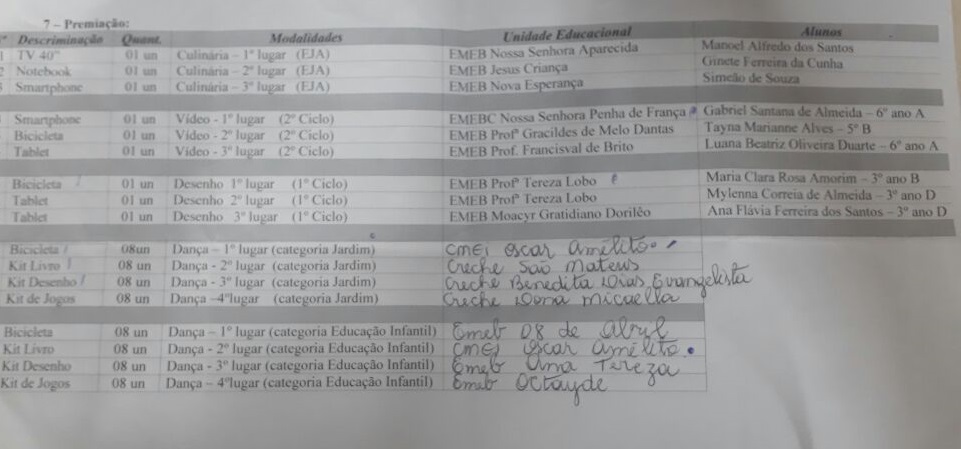 7 – Premiação:
nº Descriminação Quant. Modalidades Unidade Educacional Alunos
1 TV 40" 01 un Culinária – 1º lugar (EJA) EMEB Nossa Senhora Aparecida Manoel Alfredo dos Santos
2 Notebook 01 un Culinária – 2º lugar (EJA) EMEB Jesus Criança Ginete Ferreira da Cunha
3 Smartphone 01 un Culinária – 3º lugar (EJA) EMEB Nova Esperança Simeão de Souza
Smartphone 01 un Vídeo - 1º lugar (2º Ciclo) EMEBC Nossa Senhora Penha de França Gabriel Santana de Almeida – 6º ano A
Bicicleta 01 un Vídeo - 2º lugar (2º Ciclo) EMEB Profª Gracildes de Melo Dantas Tayna Marianne Alves – 5º B
Tablet 01 un Vídeo - 3º lugar (2º Ciclo) EMEB Prof. Francisval de Brito Luana Beatriz Oliveira Duarte – 6º ano A
Bicicleta 01 un Desenho 1º lugar (1º Ciclo) EMEB Profª Tereza Lobo Maria Clara Rosa Amorim – 3º ano B
Tablet 01 un Desenho 2º lugar (1º Ciclo) EMEB Profª Tereza Lobo Mylenna Correia de Almeida – 3º ano D
Tablet 01 un Desenho 3º lugar (1º Ciclo) EMEB Moacyr Gratidiano Dorilêo Ana Flávia Ferreira dos Santos – 3º ano D
Bicicleta 08un Dança – 1º lugar (categoria Jardim) CMEI Oscar Amélito
Kit Livro 08 un Dança - 2º lugar (categoria Jardim) Creche São Mateus
Kit Desenho 08 un Dança - 3º lugar (categoria Jardim) Creche Benedita Dias Evangelista
Kit de Jogos 08 un Dança –4ºlugar (categoria Jardim) Creche Dona Micaella
Bicicleta 08 un Dança – 1º lugar (categoria Educação Infantil) Emeb 08 de Abril
Kit Livro 08 un Dança - 2º lugar (categoria Educação Infantil) CMEI Oscar Amélito
Kit Desenho 08 un Dança - 3º lugar (categoria Educação Infantil) Emeb Ana Tereza
Kit de Jogos 08 un Dança – 4ºlugar (categoria Educação Infantil) Emeb Octayde